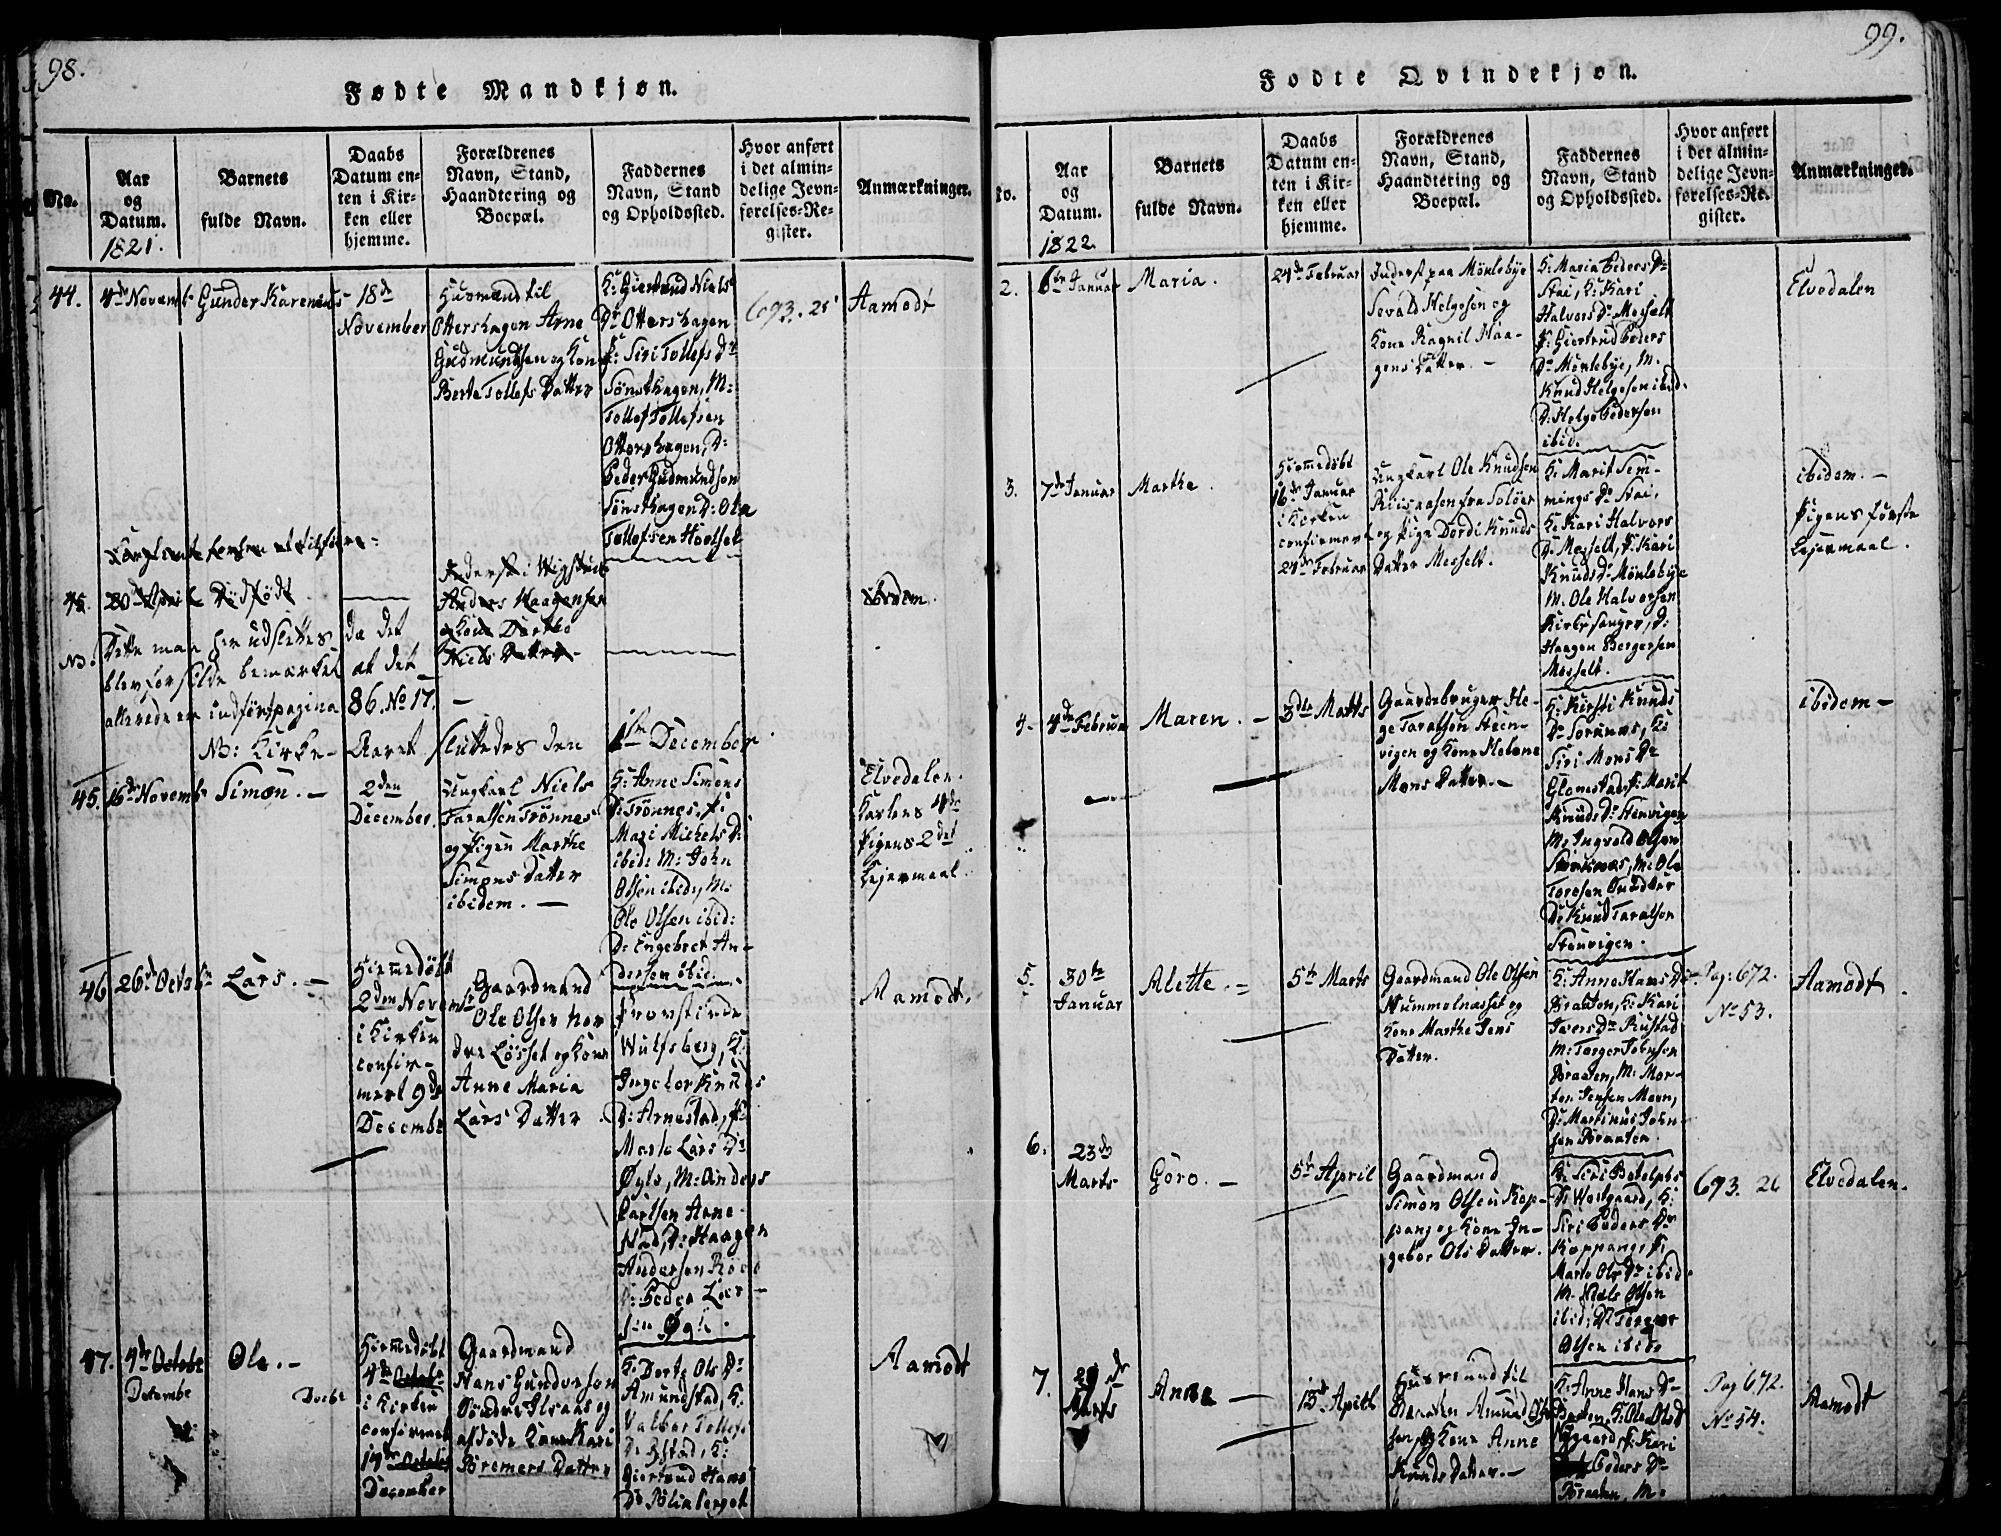 98.
Fødte Mandkjøn.
No.
Aar
og
Datum.
1821.
Barnets
fulde Navn.
Daabs
Datum en-
ten i Kir-
ken eller
hjemme.
Forældrenes
Navn, Stand,
Haandtering og
Boepæl.
Faddernes
Navn, Stand
og Opholdssted.
Hvor anført
i det almin-
delige Jevn-
førelses-Re-
gister.
Anmærkninger.
44.
4de Novemb
Gunder Karenius
18de
November
Husmand til
Ottershagen Arne
Gudmundsen og Kone
Berte Tollefs Datter
K: Giertrud Niels
Dr Ottershagen
P: Siri Tollefs Dr
Sønsthagen, M:
Tollef Tollefsen
Ottershagen, D:
Peder Gudmundsen
Sønsthagen D: Ole
Tollefsen
693. 25
Aamodt
45.
20de April Dødfødt
Anders Haagensen
og Kone Dorthe
Niels Datter
ibidem.
NB:
Dette maa her udslettes da det
blev for silde bemærket at det
allerede er indført pagina 86. No 17.
NB: Kirke- Aaret sluttedes den 1ste December
45.
16de Novemb
Simon. —
2den
December.
Ungkarl Niels
Taralsen Trønnes
og Pigen Marthe
Simons Datter
ibidem. —
K: Anne Simons
D: Trønnes, P:
Mari Michels D:
ibid: M: John
Olsen ibid, M:
Ole Olsen ibid:
D: Engebret An-
dersen ibid.
Elvedalen.
Karlens 4de
Pigens 2det
Lejermaal.
46
26de Octobr
Lars. —
Hjemmedøbt
2den Novembr
i Kirken
confir-
mert 9de
Decembr
Gaardmand
Ole Olsen Nor
dre Løsset og Kone
Anne Maria
Lars Datter
Provstinde
Wulfsberg, K:
Ingebor Knuds
D: Arnestad, P:
Marte Lars Dr
Øgle, M: Anders
Carlsen Arne-
stad, D: Haagen
Andersen
D: Peder Lar-
sen Øgle.
Aamodt.
47.
4de Octobr
Decembr
Ole. —
Hjemmedøbt
4de Octobr
Decbr
i Kirken
confirmert
19de Octobr
December
Gaardmand
Hans Gundersen
Søndre Ilsaas og
afdøde Kone Kari
Bremers Datter
K: Dorte Ols Dr
Amundstad, K.
Valbor Tollefs
K:
Giertrud Hans
Aamodt
99.
Fødte Qvindekjøn.
No.
Aar
og
Datum.
1822.
Barnets
fulde Navn.
Daabs
Datum en-
ten i Kir-
ken eller
hjemme.
Forældrenes
Navn, Stand,
Haandtering og
Boepæl.
Faddernes
Navn, Stand
og Opholdssted.
Hvor anført
i der almin-
delige Jevn-
førelses-Re-
gister.
Anmærkninger.
2.
6te Januar
Maria.
24de Februar
Inderst paa Mønlebye
Sevald Helgesen og
Kone Ragnil Haa-
gens Datter. —
K: Maria Peders Dr
Stai, K: Kari
Halvors Dr Messelt
P: Giertrud Peders
Dr Mønlebye, M.
Knud Helgesen ibid.
D: Helge Pedersen
ibid.
Elvedalen
3.
7de Januar
Marthe.
Hjemmedøbt
16de Januar
i Kirken
confirmert
24de Februar
Ungkarl Ole Knudsen
Riisaasen fra Soløer
og Pige Dordi Knuds
Datter Messelt.
K: Marit Sem-
mings Dr Stai,
K: Kari Halvors
D: Messelt, P: Kari
Knuds Dr Mønlebye
M. Ole Halvorsen
Kirkesanger, D:
Haagen Bergersen
Messelt.
ibidem. —
Pigens første
Lejermaal.
4.
4de Februar
Maren. —
3die Marts
Gaardebruger He-
ge Taralsen Steen-
vigen og Kone Helene
Mons Datter. —
K: Kirsti Knuds
Siri Mons Dr
Glomstad, P: Marit
Knuds Dr Stenvigen
M: Ingvald Olsen
M: Ole
Toresen
D: Knud Taralsen
Stenvigen.
ibidem —
5.
30te
Januar
Alette. —
5te Marts
Gaardmand Ole Olsen
Hummelnæsset og
Kone Marthe Jens
Datter.
K: Anne Hans Dr
Braaten, K: Kari
Ivers Dr Rustad
M: Torger Johnsen
Braaten, M: Mor-
ten Jensen Moen,
D: Martinus John-
sen Braaten.
Pag: 672.
No 53.
Aamodt.
6.
23de
Marts
Goro. —
5te April
Gaardmand
Simon Olsen Kop-
pang og Kone In-
gebor Ols Datter.
K: Siri Botolphs
Dr Westgaard, K:
Siri Peders Dr
Koppang, P:
Marte Ols Dr ibid.
M. Niels Olsen
ibid, D: Torger
Olsen ibid.
693. 26
Elvedalen.
7.
29de
Marts
Anne —
15de April
Husmand til
Braaten Amund Ol-
sen, og Kone Anne
Knuds Datter. —
K: Anne Hans Dr
Braaten, K: Ole Ols Dr
Nygaard, P: Kari
Peders Dr
Braaten, M:
Pag 672.
No 54.
Aamodt